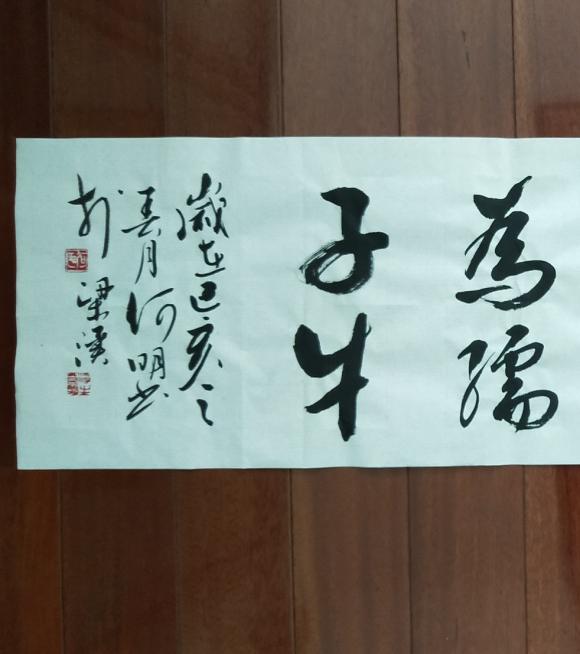 為孺
子牛
歲在己亥之
春月何明書
於梁溪